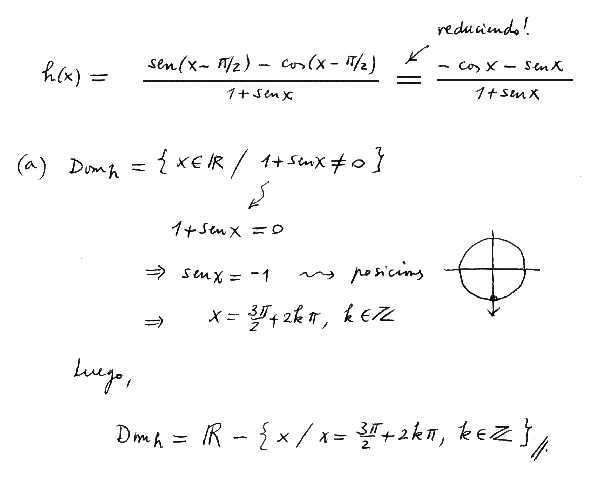 reduciendo!
h(x) = (sen(x - π/2) - cos(x - π/2)) / (1 + sen x) = (- cos x - sen x) / (1 + sen x)
(a) Dom h = { x ∈ ℝ / 1 + sen x ≠ 0 }
1 + sen x = 0
⇒ sen x = -1 ⇝ posicims
⇒ x = 3π/2 + 2kπ, k ∈ ℤ
Luego,
Dom h = ℝ - { x / x = 3π/2 + 2kπ, k ∈ ℤ } //.